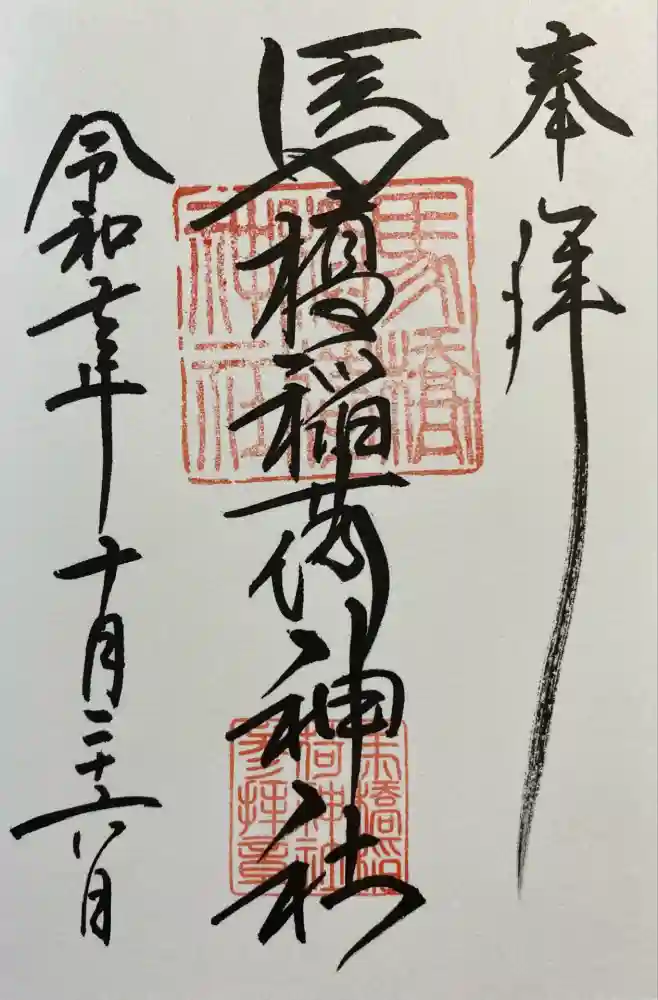 奉拝
馬橋稲荷神社
馬橋
稲荷
神社
馬橋稲
荷神社
参拝章
令和 年十月二十六日